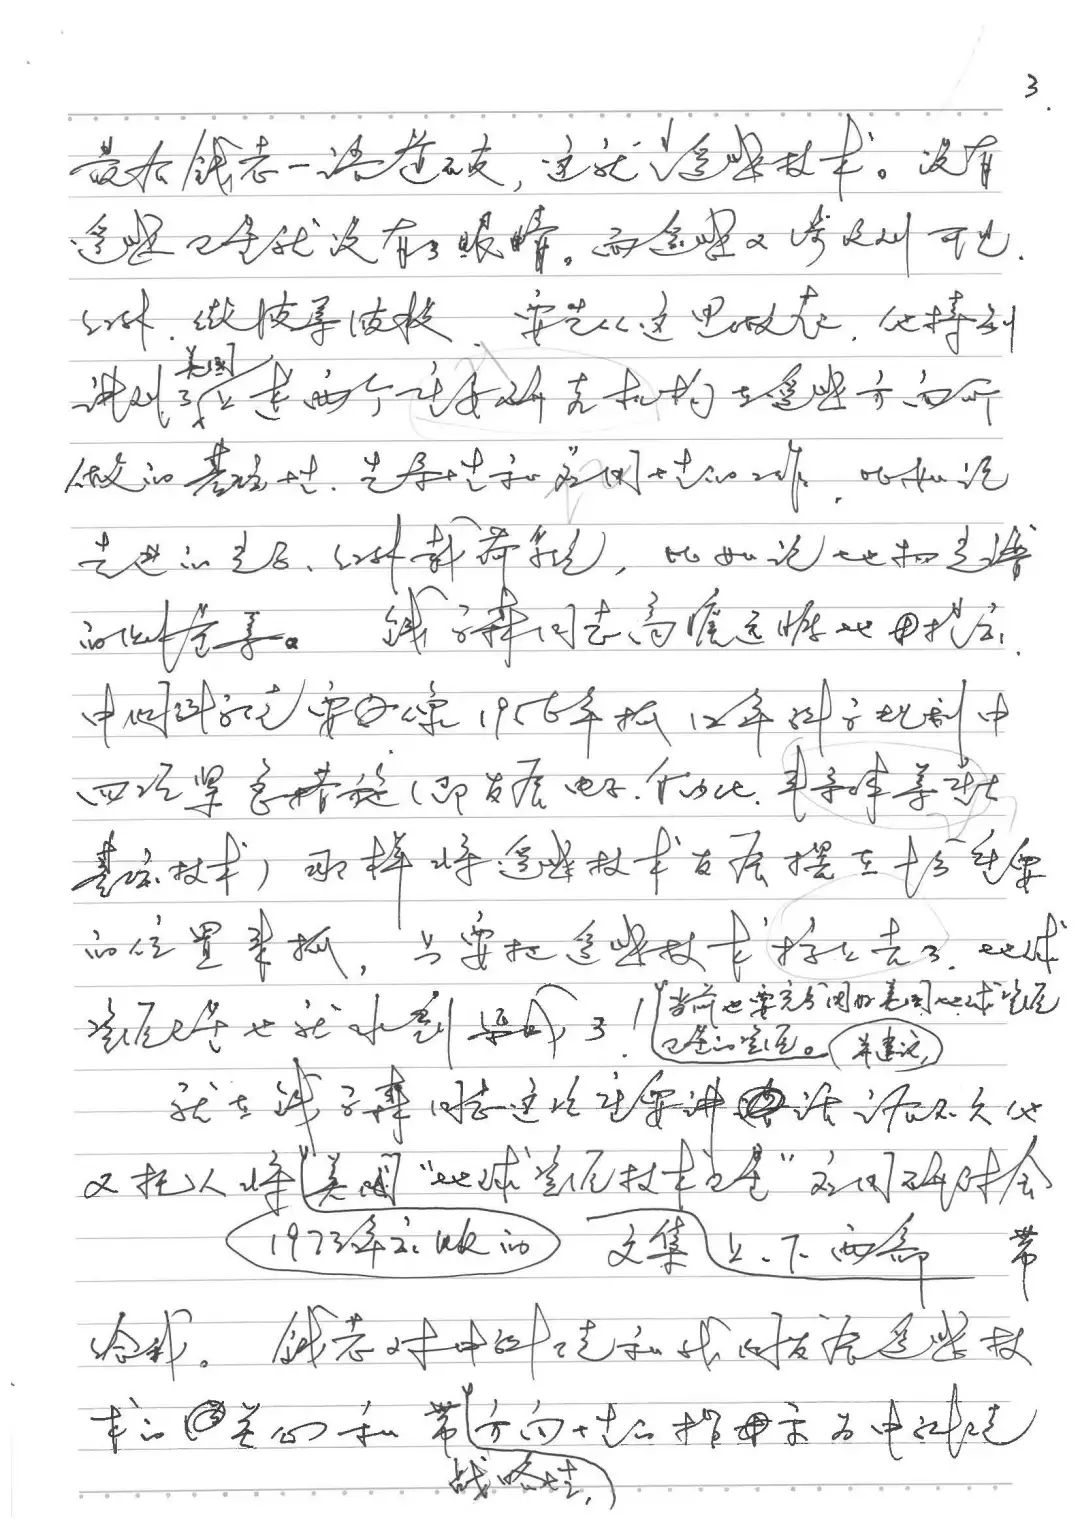 3.
最后钱老一语道破，这就是遥感技术。没有
遥感卫星就没有了眼睛。而遥感又涉及到可见.
红外.微波等波段 要先从这里做起.他特别
讲到了美国上述两个重要研究机构在遥感方面所
做的基础性.先导性和应用性的工作，比如说
先进的 红外载荷系统，比如说地物光谱
的 等。 钱学森同志高瞻远瞩地指出.
中国科学院要像1956年抓12年科学规划中
四项紧急措施（即发展电子.自动化.半导体等
基础技术）那样将遥感技术发展摆在十分重要
的位置来抓，只要把遥感技术 上去了.地球
资源卫星也就水到渠成了！当前也要充分用好美国地球资源
卫星的资源。并建议，
就在钱学森同志这次重要讲话后不久他
又托人将美国“地球资源技术卫星”应用研讨会
1973年出版的 文集上、下两部 带
给我。 钱老对中科院和我国发展遥感技
术的关心和带方向性的指导为中科院
战略性，